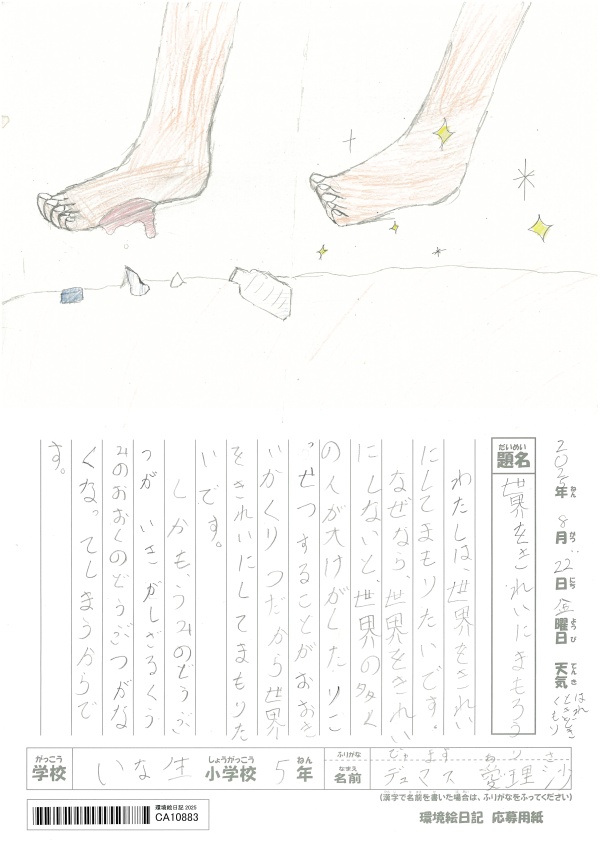 2025年ねん 8月がつ 22日にち 金曜日ようび 天気てんき はれときどきくもり
だいめい
題名 世界をきれいにまもろう
わたしは、世界をきれい
にしてまもりたいです。
なぜなら、世界をきれい
にしないと、世界の多く
の人が大けがしたりこ
っせつすることがおおき
いかくりつだから世界
をきれいにしてまもりた
いです。
しかも、うみのどうぶ
つが いきがしざるくう
みのおおくのどうぶつがな
くなってしまうからで
す。
がっこう
学校 いな生 しょうがっこう 小学校 5 ねん 年
ふりがな でゅます ありさ
なまえ
名前 デュマス 愛理沙
(漢字で名前を書いた場合は、ふりがなをふってください)
環境絵日記 2025
CA10883
環境絵日記 応募用紙